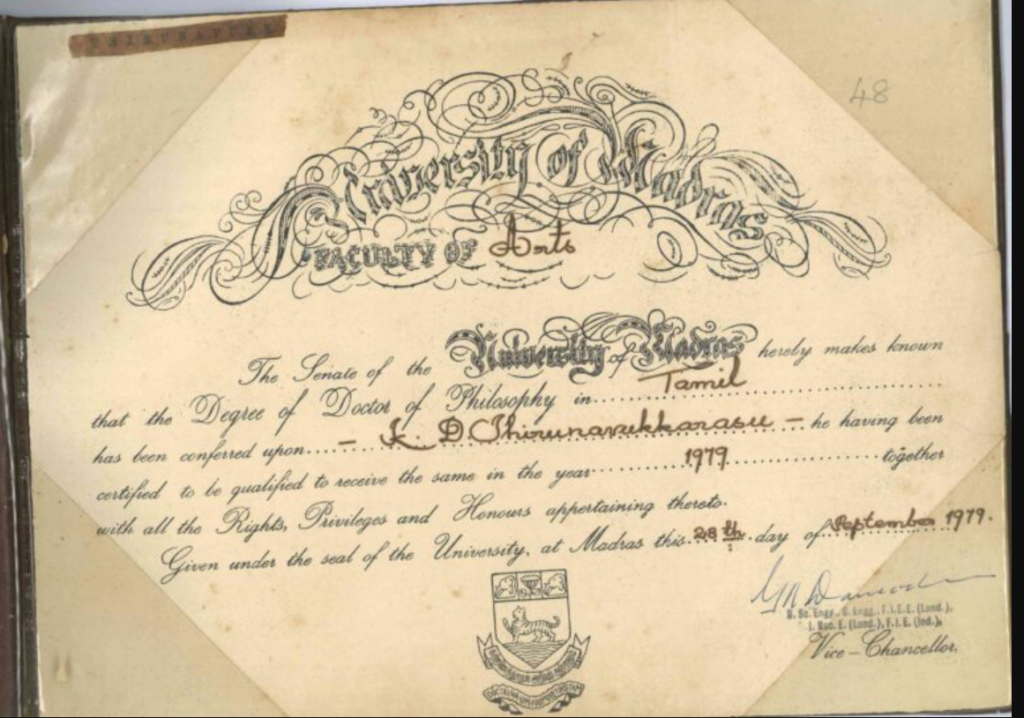 48
University of Madras
FACULTY OF Arts
The Senate of the University of Madras hereby makes known
that the Degree of Doctor of Philosophy in Tamil
has been conferred upon - K. D. Thirunavukkarasu - he having been
certified to be qualified to receive the same in the year 1979 together
with all the Rights, Privileges and Honours appertaining thereto.
Given under the seal of the University, at Madras this 28th day of September 1979.
B. Sc. Engg., F.I.E.E. (Lond.),
(Lond.), F.I.E. (Ind.),
Vice-Chancellor.